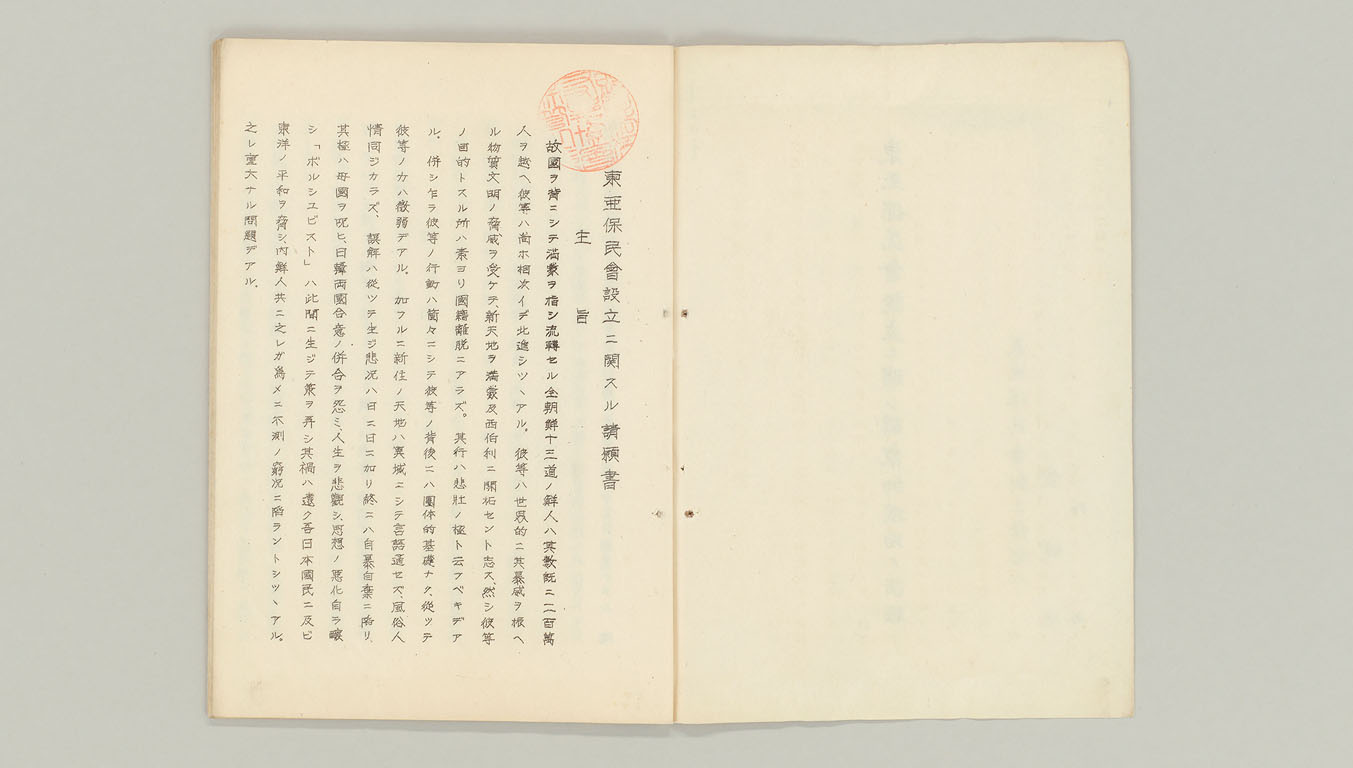 東亜保民會設立ニ関スル請願書
主旨
故國ヲ背ニシテ満蒙ヲ指シ流轉セル全朝鮮十三道ノ鮮人ハ其数既ニ二百萬
人ヲ越ヘ彼等ハ尚ホ相次イデ北進シツヽアル。彼等ハ世界的ニ其暴威ヲ振ヘ
ル物質文明ノ脅威ヲ受ケテ、新天地ヲ満蒙及西伯利ニ開拓セント志ス、然シ彼等
ノ目的トスル所ハ素ヨリ國籍離脱ニアラズ。其行ハ悲壮ノ極ト云フベキデア
ル。併シ乍ラ彼等ノ行動ハ箇々ニシテ彼等ノ背後ニハ團体的基礎ナク、從ツテ
彼等ノ力ハ微弱デアル。加フルニ新住ノ天地ハ異域ニシテ言語通セズ、風俗人
情同ジカラズ、誤解ハ從ツテ生ジ悲況ハ日ニ日ニ加リ終ニハ自暴自棄ニ陥リ、
其極ハ母國ヲ呪ヒ、日韓両國合意ノ併合ヲ怨ミ、人生ヲ悲觀シ、思想ノ悪化自ラ醸
シ「ボルシユビスト」ハ此間ニ生ジテ叢ヲ再シ其禍ハ遠ク吾日本國民ニ及ビ
東洋ノ平和ヲ脅シ、内鮮人共ニ之レガ為メニ不測ノ窮况ニ陥ラントシツヽアル。
之レ重大ナル問題デアル、